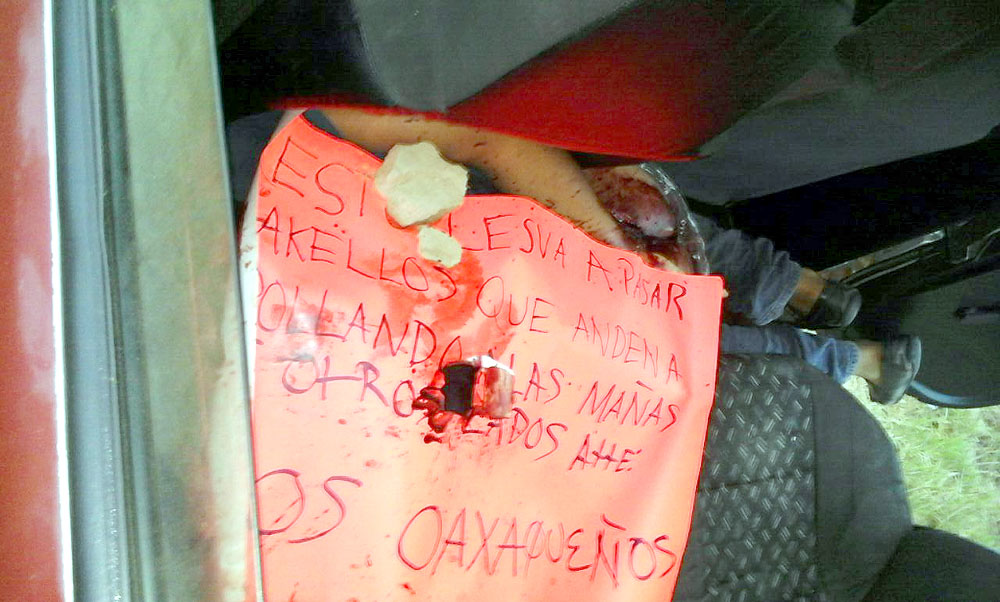 ESI LES VA A PASAR
AKELLOS QUE ANDEN A
POLLANDO LAS MAÑAS
OTRO LADOS ATTE
OS OAXAQUEÑOS